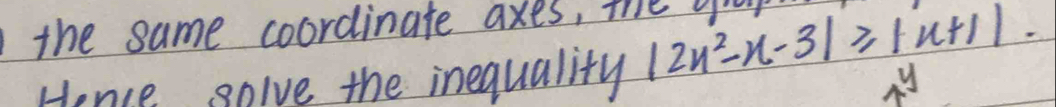 the same coordinate axes, the
Hence solve the inequality |2x²-x-3| ≥ |x+1|.
y